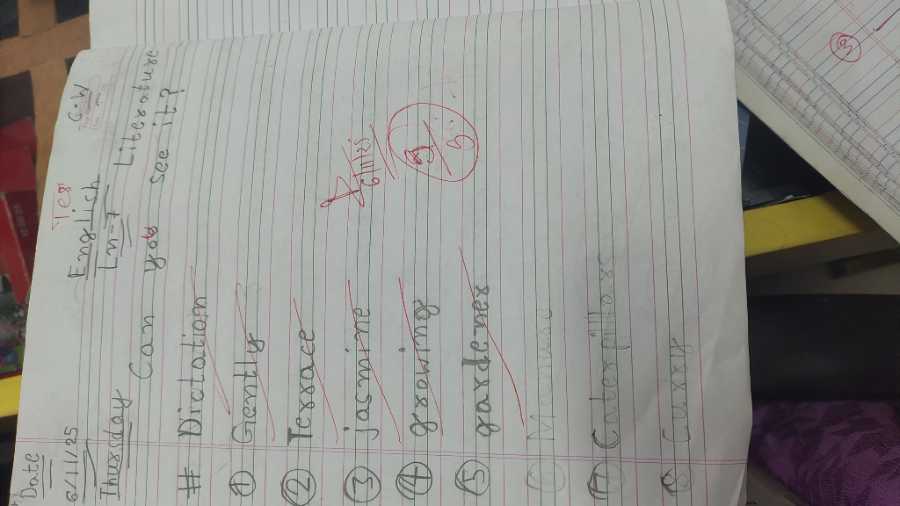 Date
6/11/25
English
C.W
Thursday
Ln-7
Literature
Can you see it?
# Dictation
① Gently
② Terrace
③ jasmine
④ growing
⑤ gardener
6/11/25
⑦ Caterpillars
⑧ Curry
3